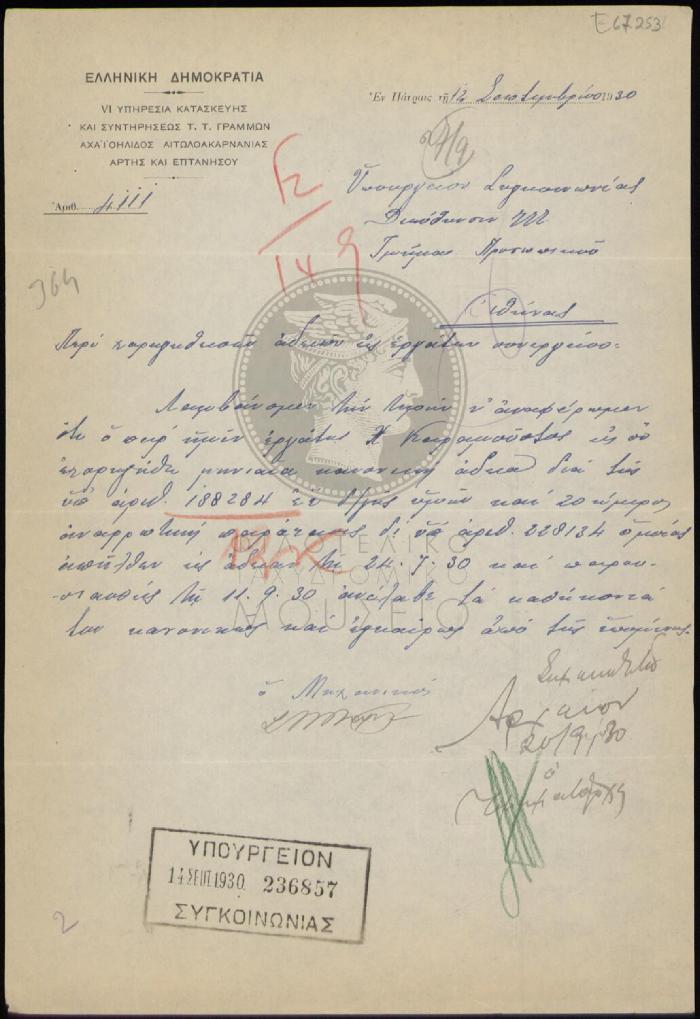 E67253
ΕΛΛΗΝΙΚΗ ΔΗΜΟΚΡΑΤΙΑ
VI ΥΠΗΡΕΣΙΑ ΚΑΤΑΣΚΕΥΗΣ
ΚΑΙ ΣΥΝΤΗΡΗΣΕΩΣ Τ. Τ. ΓΡΑΜΜΩΝ
ΑΧΑΪΟΗΛΙΔΟΣ ΑΙΤΩΛΟΑΚΑΡΝΑΝΙΑΣ
ΑΡΤΗΣ ΚΑΙ ΕΠΤΑΝΗΣΟΥ
Ἀριθ. 4111
Ἐν Πάτραις τῇ 12 Σεπτεμβρίου 1930
Ὑπουργεῖον Συγκοινωνίας
Διεύθυνσιν
Τμῆμα Προσωπικοῦ
Ἀθήνας
364
14
Περὶ χορηγηθεισῶν ἀδειῶν εἰς ἐργάτην συνεργείου.
Λαμβάνομεν τὴν τιμὴν ν' ἀναφέρωμεν
ὅτι ὁ παρ' ἡμῖν ἐργάτης Χ εἰς ὃν
ἐχορηγήθη μηνιαία κανονικὴ ἄδεια διὰ τῆς
ὑπ' ἀριθ. 188284 ἐ. δ/γῆς ὑμῶν καὶ 20ήμερος
ἀναρρωτικὴ παράτασις δι' ὑπ' ἀριθ. 228134 ὁμοίας
ἀπῆλθεν εἰς ἄδειαν τῇ 24.7.30 καὶ παρου-
σιασθεὶς τῇ 11.9.30 ἀνέλαβε τὰ καθήκοντά
του κανονικῶς καὶ ἐγκαίρως ἀπὸ τῆς
ΦΙΛΟΤΕΛΙΚΟ
ΤΑΧΥΔΡΟΜΙΚΟ
ΜΟΥΣΕΙΟ
ὁ Μηχανικὸς
Ἀρχεῖον
20/9/30
ὁ
Τμηματάρχης
ΥΠΟΥΡΓΕΙΟΝ
14 ΣΕΠ 1930 236857
ΣΥΓΚΟΙΝΩΝΙΑΣ
2